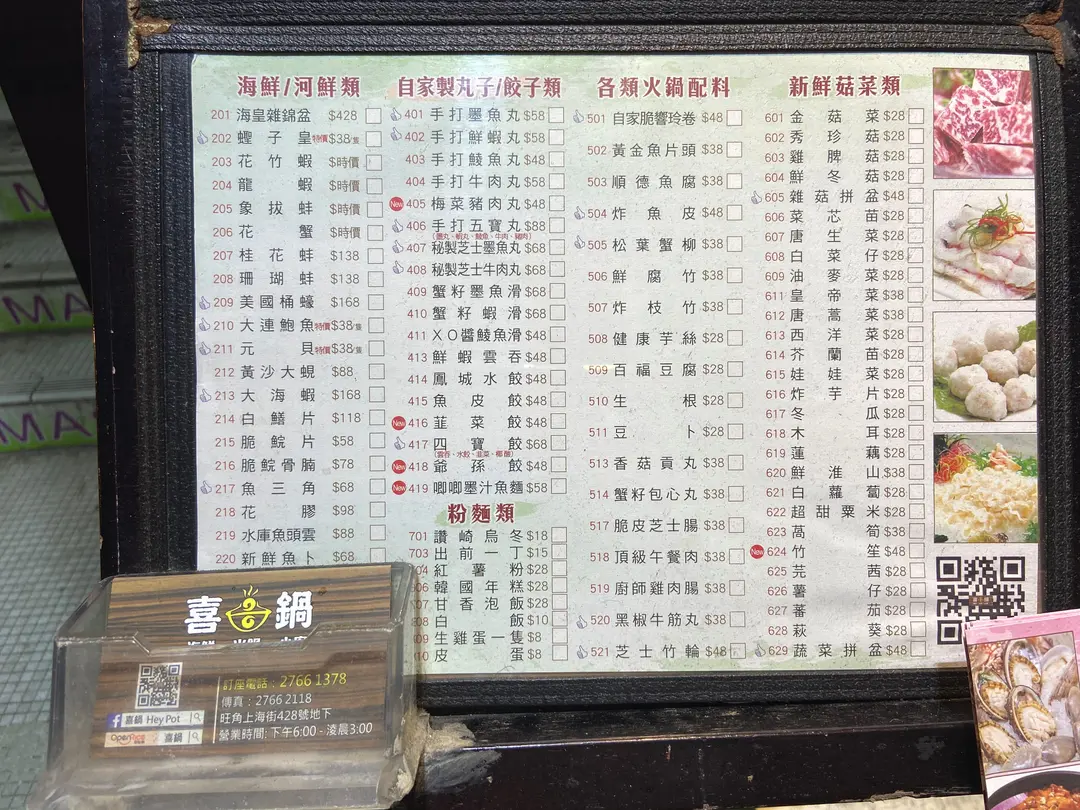 海鮮/河鮮類
201 海皇雜錦盆 $428
202 蟶子皇 特價$38/隻
203 花竹蝦 $時價
204 龍蝦 $時價
205 象拔蚌 $時價
206 花蟹 $時價
207 桂花蚌 $138
208 珊瑚蚌 $138
209 美國桶蠔 $168
210 大連鮑魚 特價$38/隻
211 元貝 特價$38/隻
212 黃沙大蜆 $88
213 大海蝦 $168
214 白鱔片 $118
215 脆鯇片 $58
216 脆鯇骨腩 $78
217 魚三角 $68
218 花膠 $98
219 水庫魚頭雲 $88
220 新鮮魚卜 $68
自家製丸子/餃子類
401 手打墨魚丸 $58
402 手打鮮蝦丸 $58
403 手打鯪魚丸 $48
404 手打牛肉丸 $58
New 405 梅菜豬肉丸 $48
406 手打五寶丸 $88
(墨丸、蝦丸、鯪魚、牛肉、豬肉)
407 秘製芝士墨魚丸 $68
408 秘製芝士牛肉丸 $68
409 蟹籽墨魚滑 $68
410 蟹籽蝦滑 $68
411 XO醬鯪魚滑 $48
413 鮮蝦雲吞 $48
414 鳳城水餃 $48
415 魚皮餃 $48
New 416 韮菜餃 $48
417 四寶餃 $68
New 418 爺孫餃 $48
New 419 唧唧墨汁魚麵 $58
粉麵類
701 讚崎烏冬 $18
703 出前一丁 $15
04 紅薯粉 $28
06 韓國年糕 $28
07 甘香泡飯 $28
08 白飯 $10
09 生雞蛋一隻 $8
10 皮蛋 $8
各類火鍋配料
501 自家脆響玲卷 $48
502 黃金魚片頭 $38
503 順德魚腐 $38
504 炸魚皮 $48
505 松葉蟹柳 $38
506 鮮腐竹 $38
507 炸枝竹 $38
508 健康芋絲 $28
509 百福豆腐 $28
510 生根 $28
511 豆卜 $28
513 香菇貢丸 $38
514 蟹籽包心丸 $38
517 脆皮芝士腸 $38
518 頂級午餐肉 $38
519 廚師雞肉腸 $38
520 黑椒牛筋丸 $38
521 芝士竹輪 $48
新鮮菇菜類
601 金菇菜 $28
602 秀珍菇 $28
603 雞脾菇 $28
604 鮮冬菇 $28
605 雜菇拼盆 $48
606 菜芯苗 $28
607 唐生菜 $28
608 白菜仔 $28
609 油麥菜 $28
611 皇帝菜 $38
612 唐蒿 $38
613 西洋菜 $28
614 芥蘭苗 $28
615 娃娃菜 $28
616 炸芋片 $28
617 冬瓜 $28
618 木耳 $28
619 蓮藕 $28
620 鮮淮山 $38
621 白蘿蔔 $28
622 超甜粟米 $28
623 萵筍 $38
New 624 竹笙 $48
625 芫茜 $28
626 薯仔 $28
627 蕃茄 $28
628 萩葵 $28
629 蔬菜拼盆 $48
喜鍋
訂座電話：2766 1378
傳真：2766 2118
旺角上海街428號地下
營業時間: 下午6:00 - 淩晨3:00
f 喜鍋 Hey Pot
OpenRice 喜鍋
MA
MA